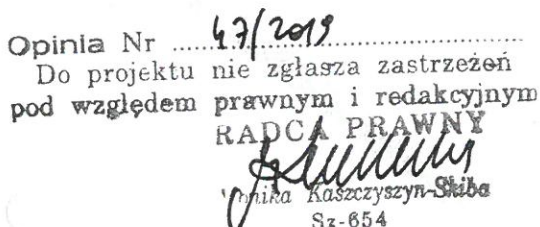 Opinia Nr 47/2019
Do projektu nie zgłasza zastrzeżeń
pod względem prawnym i redakcyjnym
RADCA PRAWNY
Kaszczyszyn-Skiba
Sz-654